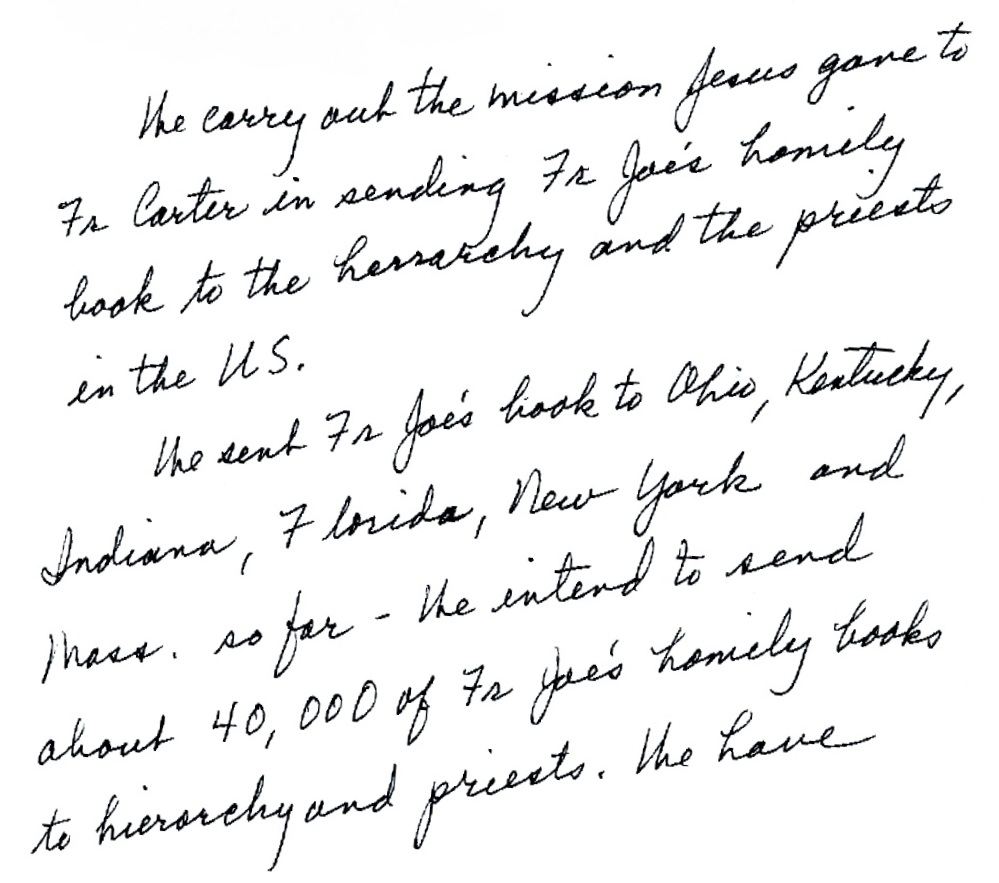 We carry out the mission Jesus gave to
Fr Carter in sending Fr Joe's homily
book to the herrarchy and the priests
in the U.S.
We sent Fr Joe's book to Ohio, Kentucky,
Indiana, Florida, New York and
Mass. so far - We intend to send
about 40,000 of Fr Joe's homily books
to hierorchy and priests. We have